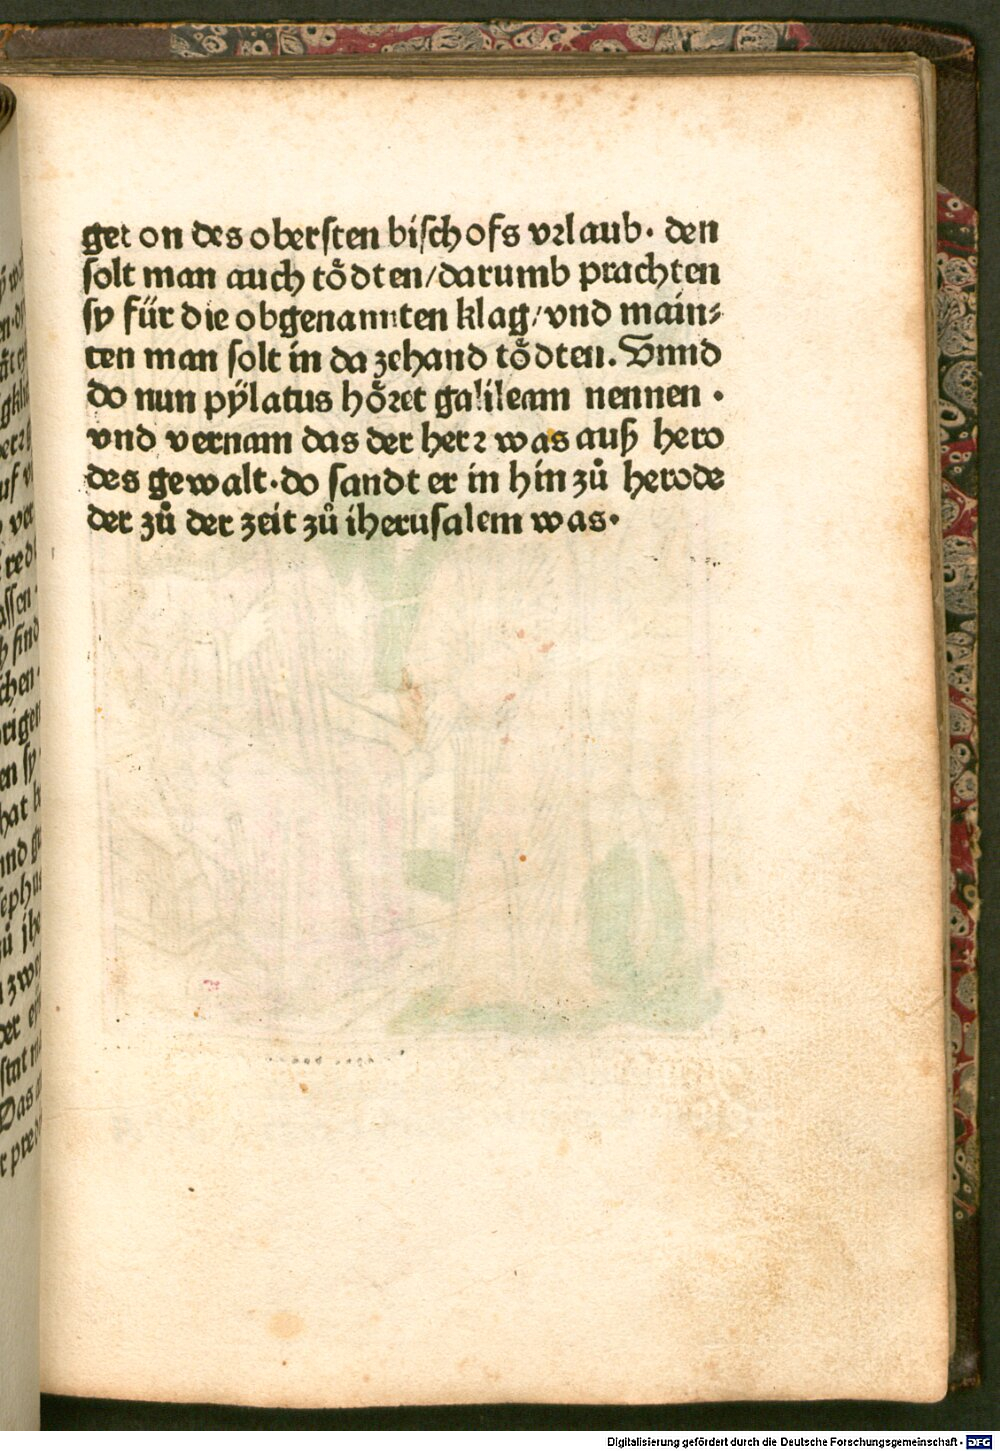 get on des obersten bischofs vꝛlaub· den
solt man auch toͤdten/darumb prachten
sy für die obgenannten klag/vnd main⸗
ten man solt in da zehand toͤdten. Vnnd
do nun pÿlatus hoͤꝛet galileam nennen ·
vnd vernam das der herꝛ was auß hero
des gewalt·do sandt er in hin zů herode
der zů der zeit zů iherusalem was·
Digitalisierung gefördert durch die Deutsche Forschungsgemeinschaft - DFG